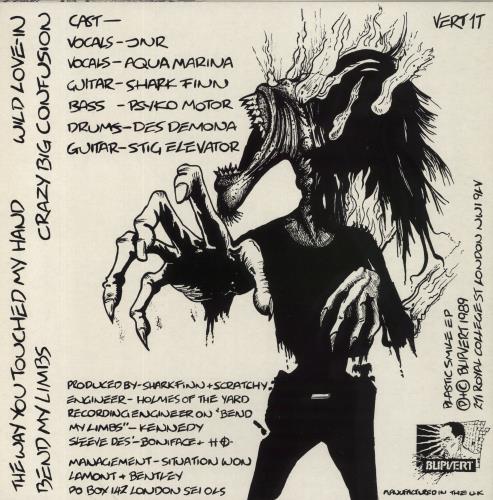 CAST—
VOCALS–JNR
VOCALS–AQUA MARINA
GUITAR–SHARK FINN
BASS –PSYKO MOTOR
DRUMS–DES DEMONA
GUITAR–STIG ELEVATOR
VERT 1T
THE WAY YOU TOUCHED MY HAND
WILD LOVE-IN
BEND MY LIMBS
CRAZY BIG CONFUSION
PRODUCED BY–SHARKFINN+SCRATCHY
ENGINEER–HOLMES OF THE YARD
RECORDING ENGINEER ON 'BEND
MY LIMBS"–KENNEDY
SLEEVE DES'–BONIFACE+
MANAGEMENT–SITUATION WON
LAMONT+BENTLEY
PO BOX 142 LONDON SE1 0LS
PLASTIC SMILE EP
℗+© BLIPVERT 1989
271 ROYAL COLLEGE ST LONDON NW1 9LV
BLIPVERT
MANUFACTURED IN THE U.K